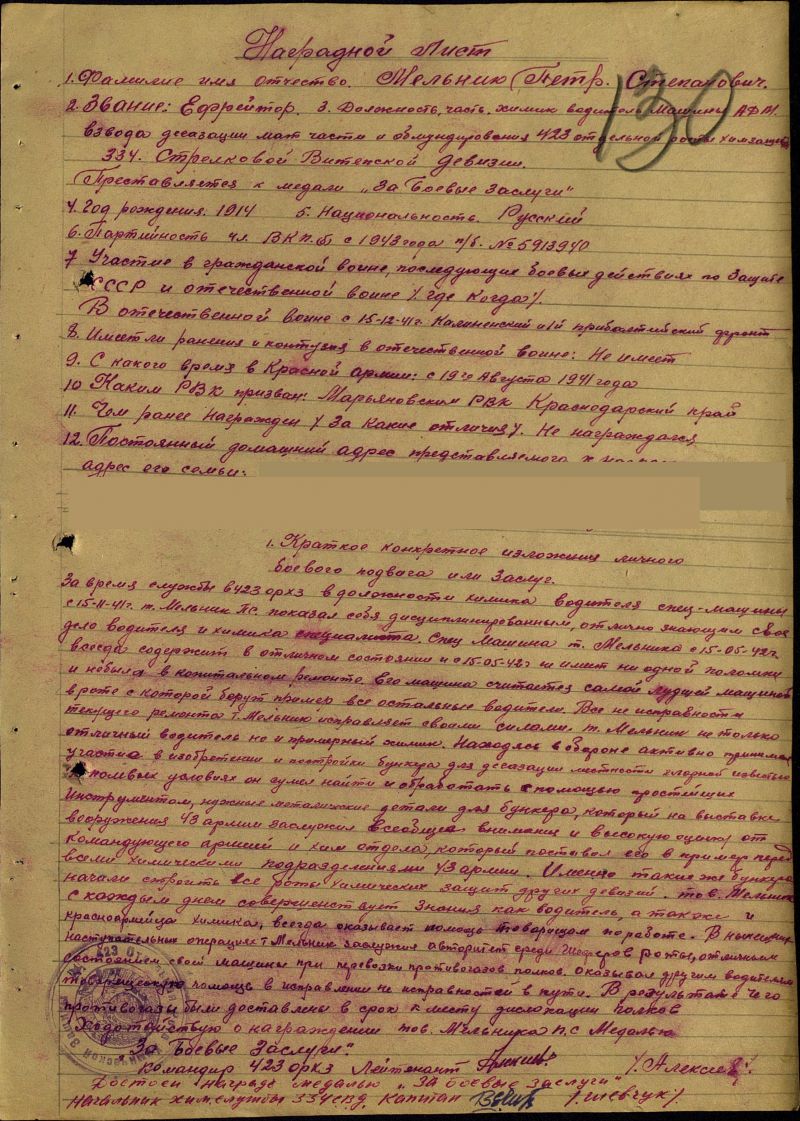 Наградной Лист
1. Фамилие имя отчество. Мельник Петр. Степанович.
130
2. Звание: Ефрейтор. 3. Должность, часть. химик водител машины АДМ
взвода дегазации мат части и обмундирования 423 отдельной роты химзащит
334. Стрелковой Витепской девизии.
Преставляется к медали „За Боевые Заслуги"
4. Год рождения. 1914 5. Национальность. Русский
6. Партийность чл. ВКП.(б) с 1943 года п/б. № 5913940
7 Участие в гражданской воине, последующих боевых действиях по Защите
СССР и отечественной воине / где когда /.
В отечественной воине с 15-12-41г. Калиненский и 1й прибалтийский фронт
8. Имеет ли ранения и контузия в отечественной воине: Не имеет
9. С какого время в Красной армии: с 19го Августа 1941 года
10 Каким РВК призван: Марьяновским РВК Краснодарский край
11. Чем ранее награжден / За какие отличия /. Не награждался
12. Постоянный домашний адрес представляемого к
адрес его семьи:
1. Краткое конкретное изложения личного
боевого подвага или Заслуг.
За время службы в 423 орхз в должности химика водителя спец-машины
с 15-11-41г. т. Мельник П.С. показал себя дисциплинированным, отлично знающим свое
дело водителя и химика специалиста. Спец машина т. Мельника с 15-05-42г.
всегда содержит в отличном состоянии и с 15-05-42г не имет ни одной поломки
и небыла в копитальном ремонте. Его машина считается самой лудшой машиной
в роте с которой борут пример все остальные водители. Все не исправности
текущего ремонта т Мельник исправляет своими силами. т. Мельник не только
отличный водитель но и примерный химик. Находясь в обороне активно принимал
участие в изобретении и постройки бункера для дегазации местности хлорной известью
в полевых условиях он сумел найти и обработать с помощью простейших
Инструментом, нужные металические детали для бункера, который на выставке
вооружения 43 армии заслужил Всеобщие внимание и высокую оценку от
командующего армией и хим отдела, который поставил его в пример перед
всеми химическими подразделениями 43 армии. Именно такие же бункера
начали строить все роты химических защит других девизий. тов. Мельник
с каждым днем совершенствует Знания как водитель, а также и
красноармейца химика, всегда оказывает помощь товарищам по работе. В нынешних
наступательных операциях т Мельник заслужил авторитет среди шоферов роты, отличным
состоянием своей машины при перевозки противогазов полков. Оказывал другим водителям
товарищескую помощь в исправлении не исправностей в пути. В результате чего
противогазы были доставлены в срок к месту дислокации полков
Ходотайствую о награждении тов. Мельника п.с Медалью
„За Боевые Заслуги".
Командир 423 орхз Лейтенант /. Алексеев /.
Достоен награде медалью „За боевые заслуги"
Начальник хим. службы 334 сд. капитан / Шевчук /